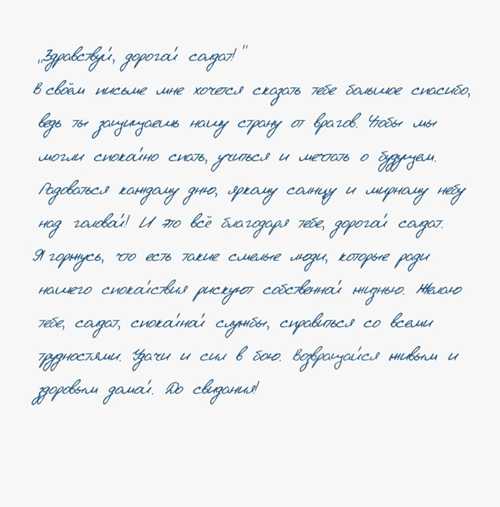 „Здравствуй, дорогой солдат!"
В своём письме мне хочется сказать тебе большое спасибо,
ведь ты защищаешь нашу страну от врагов. Чтобы мы
могли спокойно спать, учиться и мечтать о будущем.
Радоваться каждому дню, яркому солнцу и мирному небу
над головой! И это всё благодаря тебе, дорогой солдат.
Я горжусь, что есть такие смелые люди, которые ради
нашего спокойствия рискуют собственной жизнью. Желаю
тебе, солдат, спокойной службы, справиться со всеми
трудностями. Удачи и сил в бою. Возвращайся живым и
здоровым домой. До свидания!